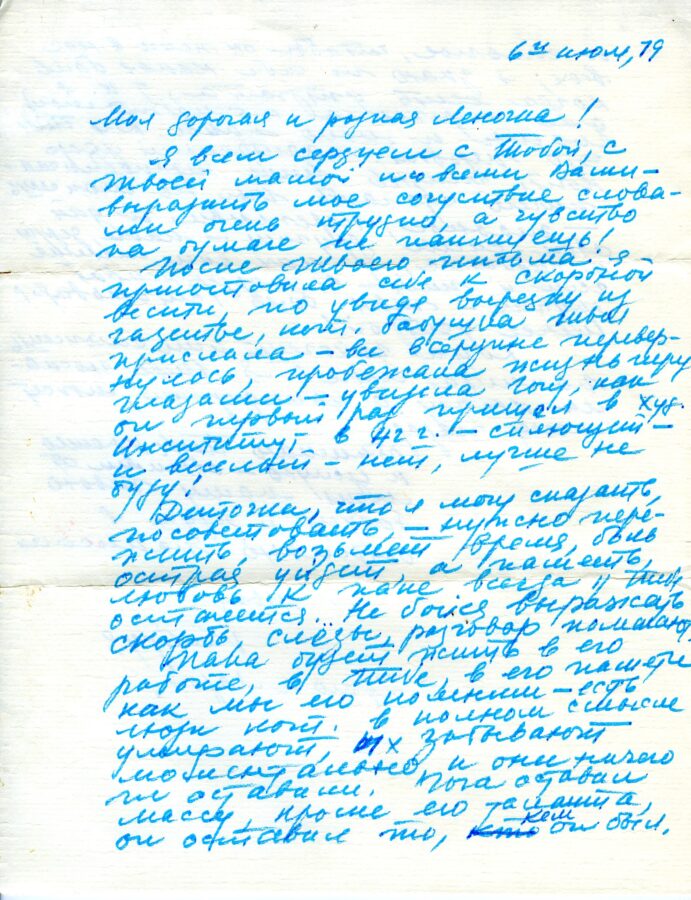 6ᵍᵒ июля, 79
Моя дорогая и родная Леночка!
Я всем сердцем с Тобой, с
твоей мамой и со всеми Вами –
выразить мое сочувствие слова-
ми очень трудно, а чувство
на бумаге не напишешь!
После твоего письма я
приготовила себя к скорбной
вести, но увидя вырезку из
газеты, кот. бабушка
прислала – все в сердце перевер-
нулось, пробежала жизнь перед
глазами – увидела Гогу, как
он первый раз пришел в худ.
Институт – в 42 г. – сияющий –
и веселый – нет, лучше не
буду!
Деточка, что я могу сказать,
посоветовать, – нужно пере-
жить, возьмет время, боль
острая уйдет а память,
любовь к папе всегда у Тебя
останется. Не бойся выражать
скорбь, слезы, разговор помогают.
Папа будет жить в его
работе, в Тебе, в его памяти
как мы его помним – есть
люди кот. в полном смысле
умирают, их забывают
моментально и они ничего
не оставили. Гога оставил
массу, кроме его таланта,
он оставил то, кто кем он был.